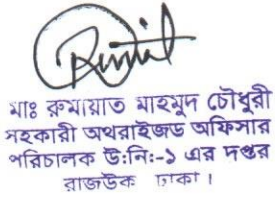 মাঃ রুমায়াত মাহমুদ চৌধুরী
সহকারী অথরাইজড অফিসার
পরিচালক উ:নি:-১ এর দপ্তর
রাজউক ঢাকা।